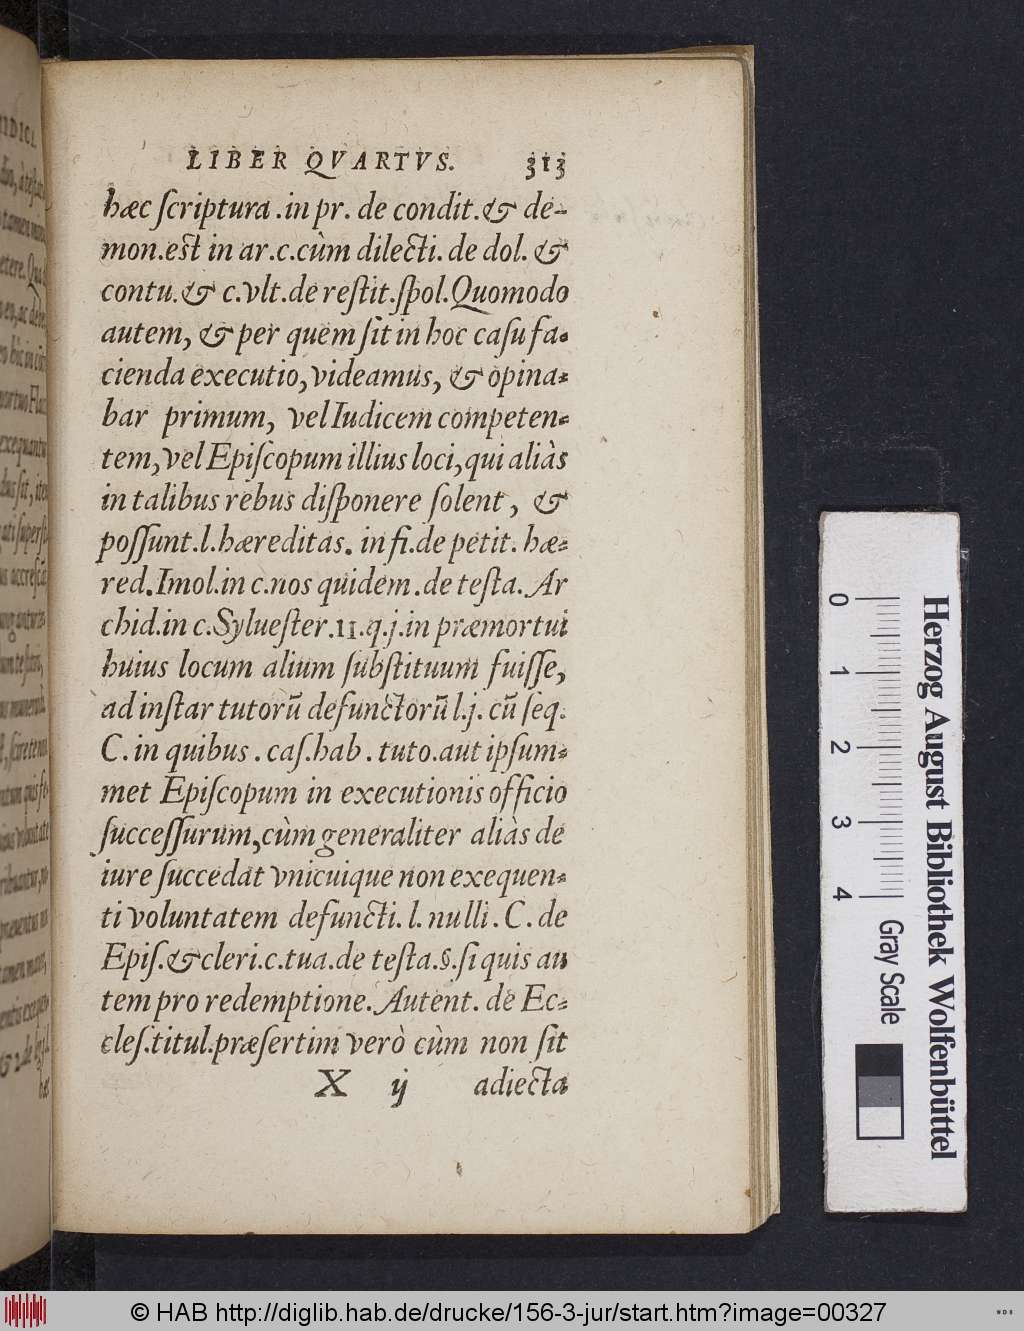 LIBER QVARTVS. 313
hæc ſcriptura .in pr. de condit. & de-
mon.est in ar.c.cùm dilecti. de dol. &
contu. & c.vlt.de reſtit.ſpol.Quomodo
autem, & per quem ſit in hoc caſu fa-
cienda executio, videamus, & opina-
bar primum, vel Iudicem competen-
tem, vel Epiſcopum illius loci, qui aliàs
in talibus rebus diſponere ſolent, &
poſſunt.l.hæreditas. in fi.de petit. hæ-
red.Imol.in c.nos quidem.de teſta. Ar
chid.in c.Sylueſter.11.q.j.in præmortui
huius locum alium ſubſtituum fuiſſe,
ad inſtar tutorū defunctorū l.j. cū ſeq.
C. in quibus . caſ.hab . tuto.aut ipſum-
met Epiſcopum in executionis officio
ſucceſſurum, cùm generaliter aliàs de
iure ſuccedat vnicuique non exequen-
ti voluntatem defuncti. l. nulli . C. de
Epiſ. & cleri.c.tua.de teſta.§.ſi quis au
tem pro redemptione. Autent. de Ec-
cleſ.titul.præſertim verò cùm non ſit
X ij adiecta
Herzog August Bibliothek Wolfenbüttel
0 1 2 3 4 Gray Scale
© HAB http://diglib.hab.de/drucke/156-3-jur/start.htm?image=00327